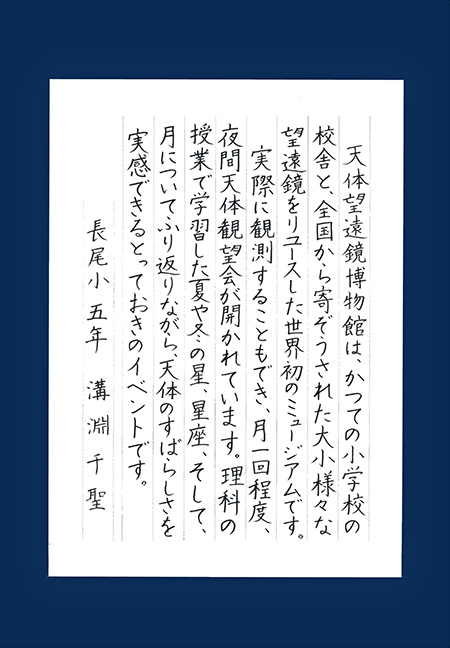 天体望遠鏡博物館は、かつての小学校の
校舎と、全国から寄ぞうされた大小様々な
望遠鏡をリユースした世界初のミュージアムです。
実際に観測することもでき、月一回程度、
夜間天体観望会が開かれています。理科の
授業で学習した夏や冬の星、星座、そして、
月についてふり返りながら、天体のすばらしさを
実感できるとっておきのイベントです。
長尾小 五年 溝淵千聖